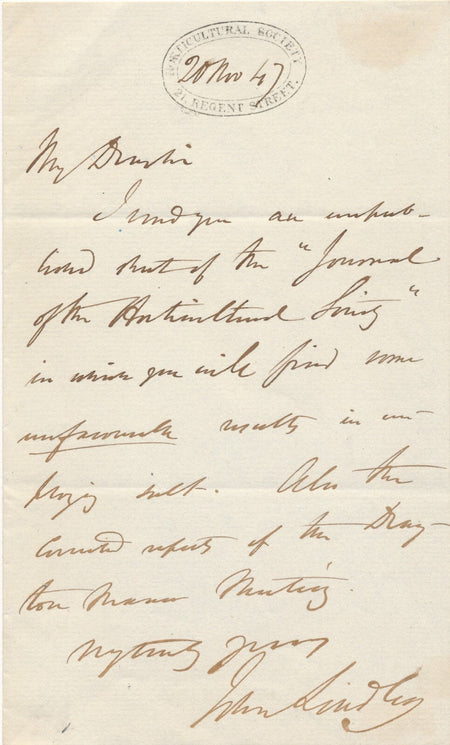 HORTICULTURAL SOCIETY
20 Nov 47
21, REGENT STREET.
My Dear Sir
I send you an unpub-
lished sheet of the "Journal
of the Horticultural Society"
in which you will find some
unfavourable results in em-
ploying salt. Also the
corrected reports of the Dray-
ton Manor Meeting.
My truly yours
John Lindley